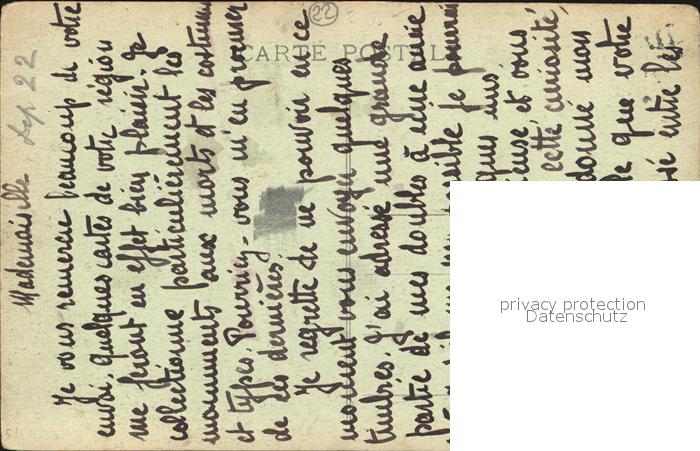 CARTE POSTALE
22
Sep 22
Mademoiselle
Je vous remercie beaucoup de votre
envoi. Quelques cartes de votre région
me feront en effet bien plaisir. Je
collectionne particulièrement les
monuments aux morts et les costumes
et types. Pourriez-vous m'en procurer
de ces derniers
Je regrette de ne pouvoir en ce
moment vous envoyer quelques
timbres. J'ai adressé une grande
partie de mes doubles à une amie
possible je pourrai
ques uns
euse et vous
cette curiosité
donné mon
que votre
entre les
privacy protection
Datenschutz